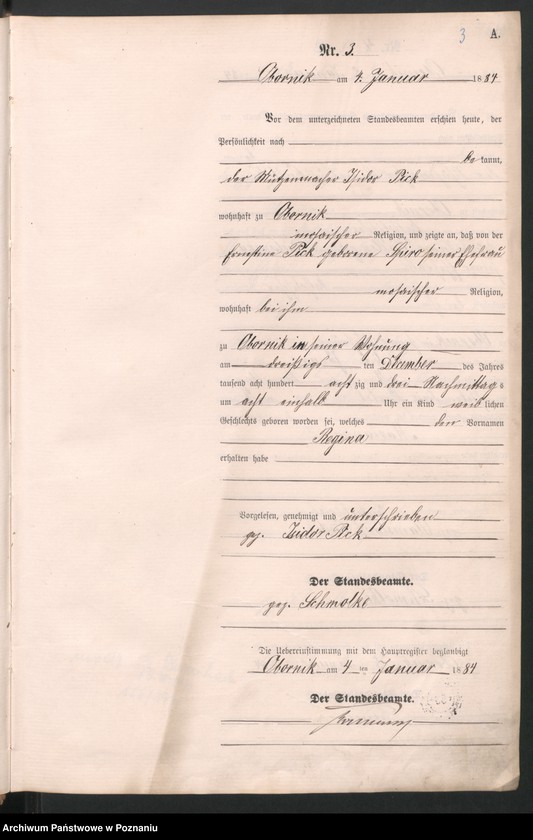 3 A.
Nr. 3.
Obornik am 4. Januar 1884
Vor dem unterzeichneten Standesbeamten erschien heute, der
Persönlichkeit nach
be kannt,
der Mützenmacher Isidor Pick
wohnhaft zu Obornik
mosaischer Religion, und zeigte an, daß von der
Ernestine Pick geborene Spiro seiner Ehefrau
mosaischer Religion,
wohnhaft bei ihm
zu Obornik in seiner Wohnung
am dreißigs ten December des Jahres
tausend acht hundert acht zig und drei Nachmittag s
um acht einhalb Uhr ein Kind weib lichen
Geschlechts geboren worden sei, welches den Vornamen
Regina
erhalten habe
Vorgelesen, genehmigt und unterschrieben
gez. Isidor Pick
Der Standesbeamte.
gez. Schmolke
Die Uebereinstimmung mit dem Hauptregister beglaubigt
Obornik am 4 ten Januar 1884
Der Standesbeamte.
Archiwum Państwowe w Poznaniu